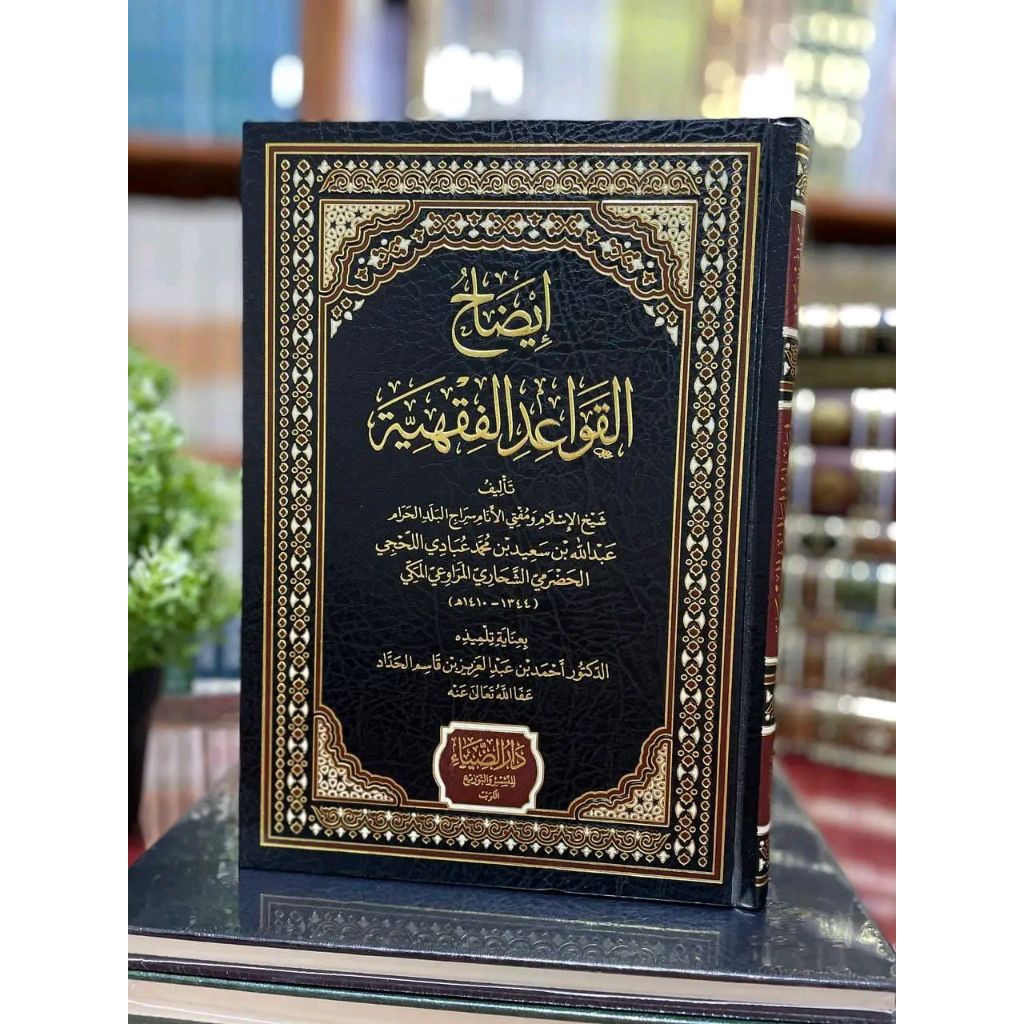 إِيضَاحُ
القَوَاعِدِ الفِقْهِيَّة
تَأْلِيفُ
شَيْخِ الإِسْلَامِ وَمُفْتِي الأَنَامِ سِرَاجِ البَلَدِ الحَرَامِ
عَبْدِ اللهِ بْنِ سَعِيدِ بْنِ مُحَمَّد عُبَادِي اللَّحْجِي
الحَضْرَمِيّ الشَّحَارِيّ المَرَاوِعِيّ المَكِّي
(١٣٤٤ - ١٤١٠هـ)
بِعِنَايَةِ تِلْمِيذِهِ
الدكتُور أَحْمَد بْن عَبْد العَزِيز بْن قَاسِم الحَدَّاد
عَفَا اللهُ تَعَالَى عَنْهُ
دَارُ الضِّيَاءِ
لِلنَّشْرِ وَالتَّوْزِيعِ
الكويت